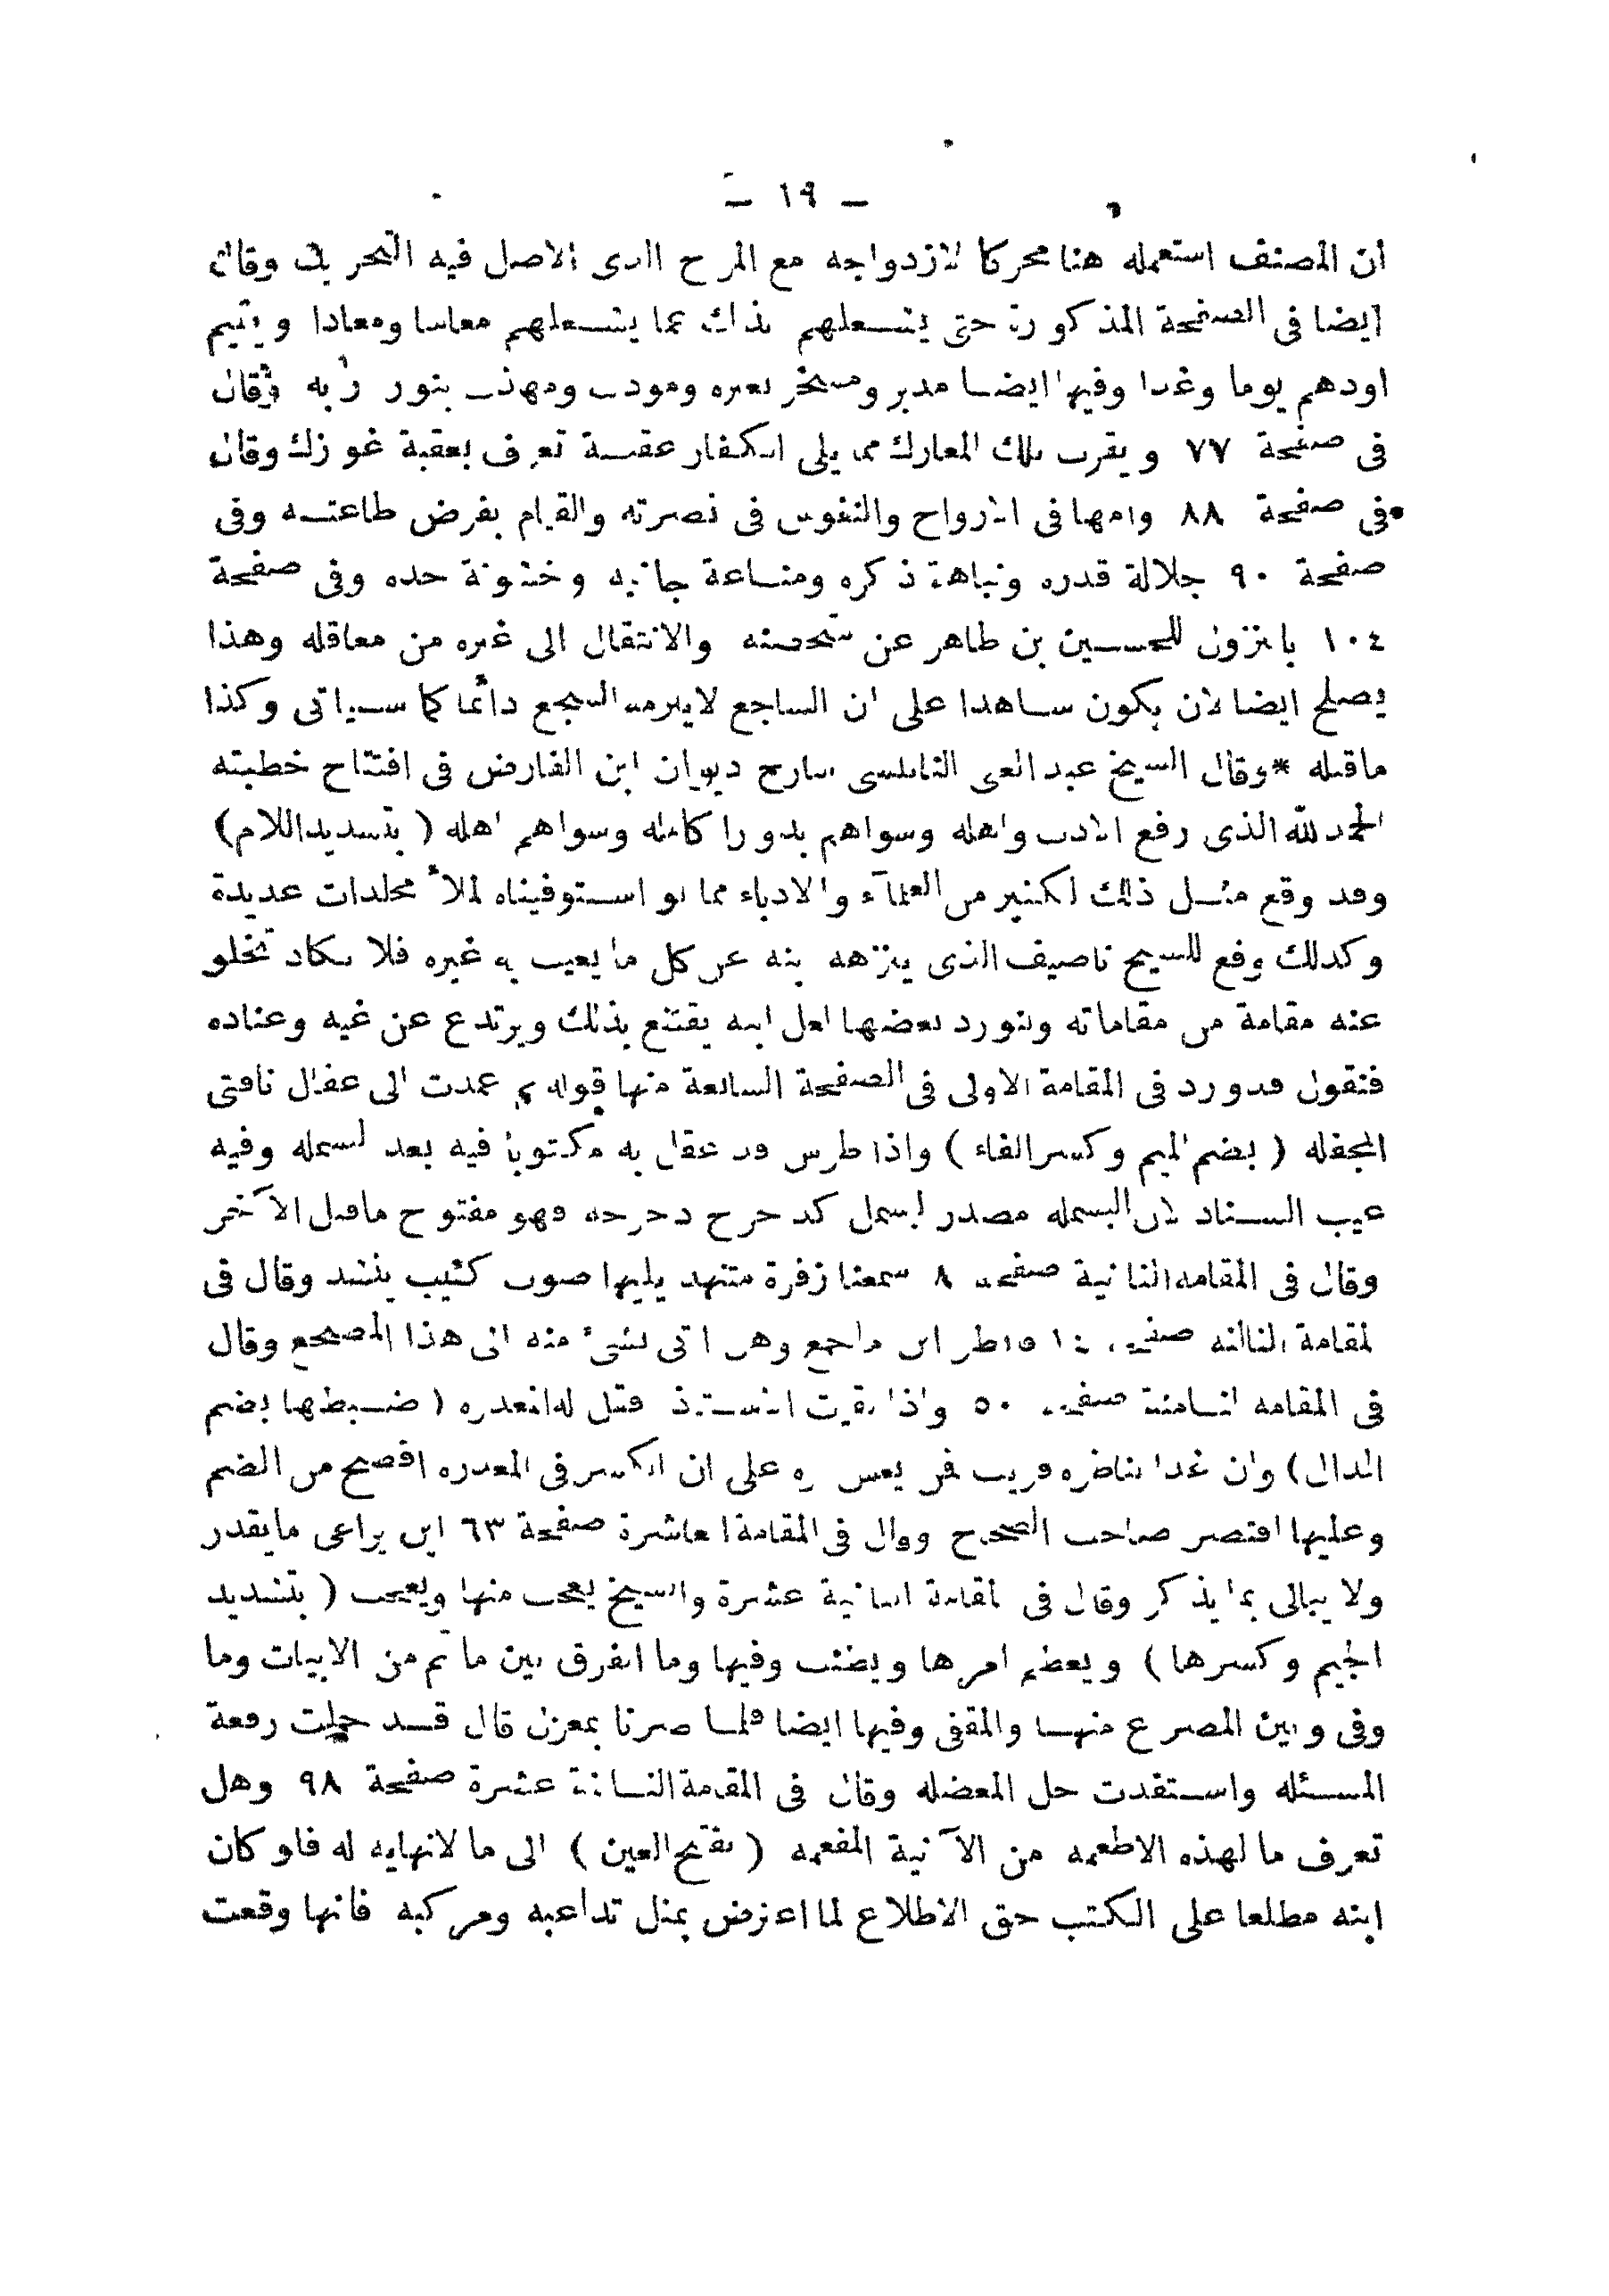 — ١٩ —
ان المصنف استعمله هنا محركا لازدواجه مع المرح الذى الاصل فيه التحريك وقال
ايضا فى الصفحة المذكورة حتى يشــغلهم بذلك عما يشــغلهم معاشا ومعادا ويقيم
اودهم يوما وغدا وفيها ايضــا مدبر ومسخر لغيره ومودب ومهذب بنور ربه وقال
فى صفحة ٧٧ ويقرب تلك المعارك مما يلى الكفار عقبــة تعرف بعقبة غوزك وقال
فى صفحة ٨٨ وامها فى الارواح والنفوس فى نصرته والقيام بفرض طاعتــه وفى
صفحة ٩٠ جلالة قدره ونباهة ذكره ومنــاعة جانبه وخشونة حده وفى صفحة
١٠٤ بالنزول للحســين بن طاهر عن متحصنه والانتقال الى غيره من معاقله وهذا
يصلح ايضا لان يكون شــاهدا على ان الساجع لايلزمه السجع دائما كما ســياتى وكذا
ماقبله * وقال الشيخ عبد الغنى النابلسى شارح ديوان ابن الفارض فى افتتاح خطبته
الحمد لله الذى رفع الادب واهله وسواهم بدورا كامله وسواهم اهله ( بتشديد اللام )
وقد وقع مثــل ذلك لكثير من العلمآء والادباء مما لو اســتوفيناه لملأ مجلدات عديدة
وكذلك وقع للشيخ ناصيف الذى ينزهه ابنه عن كل ما يعيب به غيره فلا تكاد تخلو
عنه مقامة من مقاماته ونورد بعضها لعل ابنه يقتنع بذلك ويرتدع عن غيه وعناده
فنقول قد ورد فى المقامة الاولى فى الصفحة السابعة منها قوله ثم عمدت الى عقال ناقتى
المجفله ( بضم الميم وكسر الفاء ) واذا طرس قد عقل به مكتوبا فيه بعد البسمله وفيه
عيب الســناد لان البسمله مصدر لبسمل كدحرج دحرجه فهو مفتوح ماقبل الآخر
وقال فى المقامه الثانية صفحه ٨ سمعنا زفرة متنهد يليها صوت كئيب ينشد وقال فى
المقامة الثالثه صفحه ١٤ فانظر اين ماجمع وهل اتى بشئ منه الى هذا المضجع وقال
فى المقامه الثــامنة صفحه ٥٠ واذا بقيت الاســتاذ فقل له المعدره ( ضــبطها بضم
الدال ) وان غدا لناظره قريب فمن يعش ره على ان الكسر فى المعدره افصح من الضم
وعليها اقتصر صاحب الصحاح وقال فى المقامة العاشرة صفحة ٦٣ اين يراعى مايقدر
ولا يبالى بما يذكر وقال فى المقامة الثانية عشرة والشيخ يعجب منها ويعجب ( بتشديد
الجيم وكسرها ) ويعظم امرها ويضئب وفيها وما الفرق بين ما تم من الابيات وما
وفى وبين المصرع منهــا والمقفى وفيها ايضا فلمــا صرنا بمعزل قال قــد حملت رقعة
المســئله واســتفدت حل المعضله وقال فى المقامة الثــالثة عشرة صفحة ٩٨ وهل
تعرف ما لهذه الاطعمه من الآنية المفعمه ( بفتح العين ) الى ما لانهايه له فلو كان
ابنه مطلعا على الكتب حق الاطلاع لما اعترض بمثل تداعبه ومركبه فانها وقعت